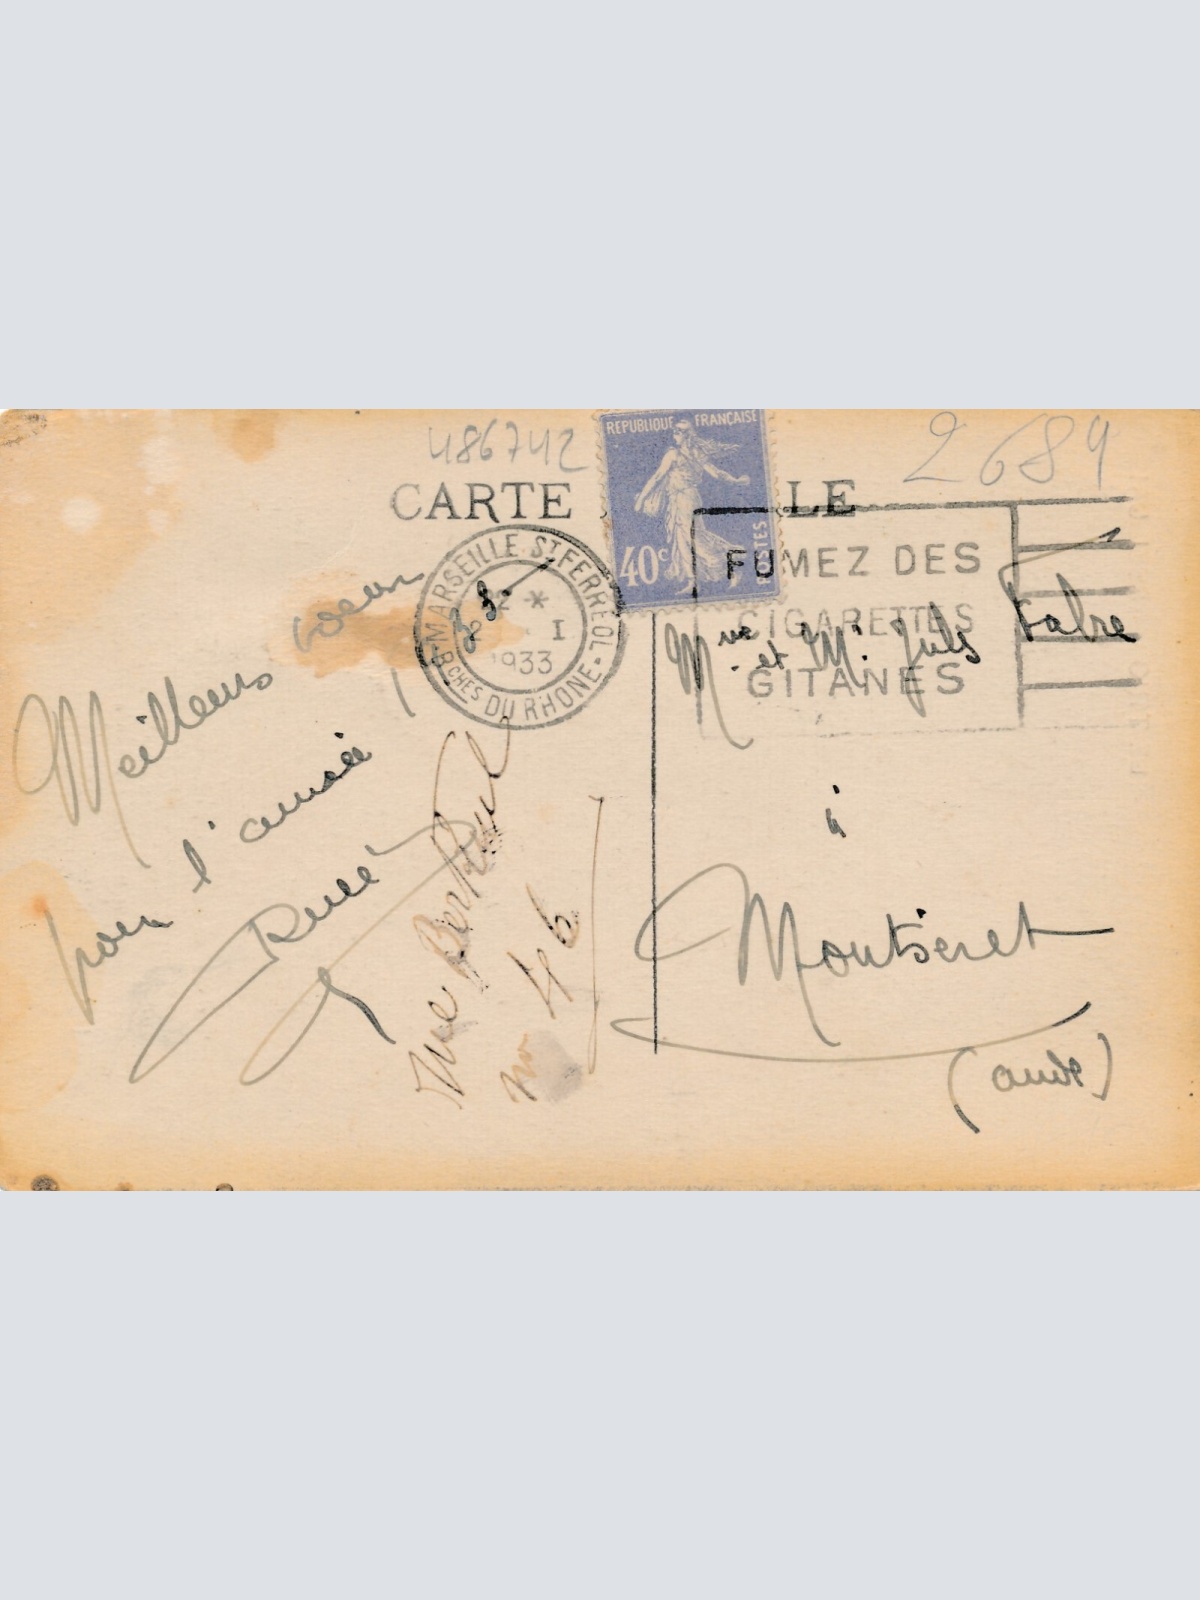 486742
2689
CARTE LE
REPUBLIQUE FRANÇAISE
40c
POSTES
MARSEILLE ST FERREOL
22 *
I
1933
BCHES DU RHONE
FUMEZ DES
CIGARETTES
GITANES
Meilleurs voeux
pour l'année 33
René
rue
no 46
Mme et M. Jules Fabre
à
Montséret
(aude)